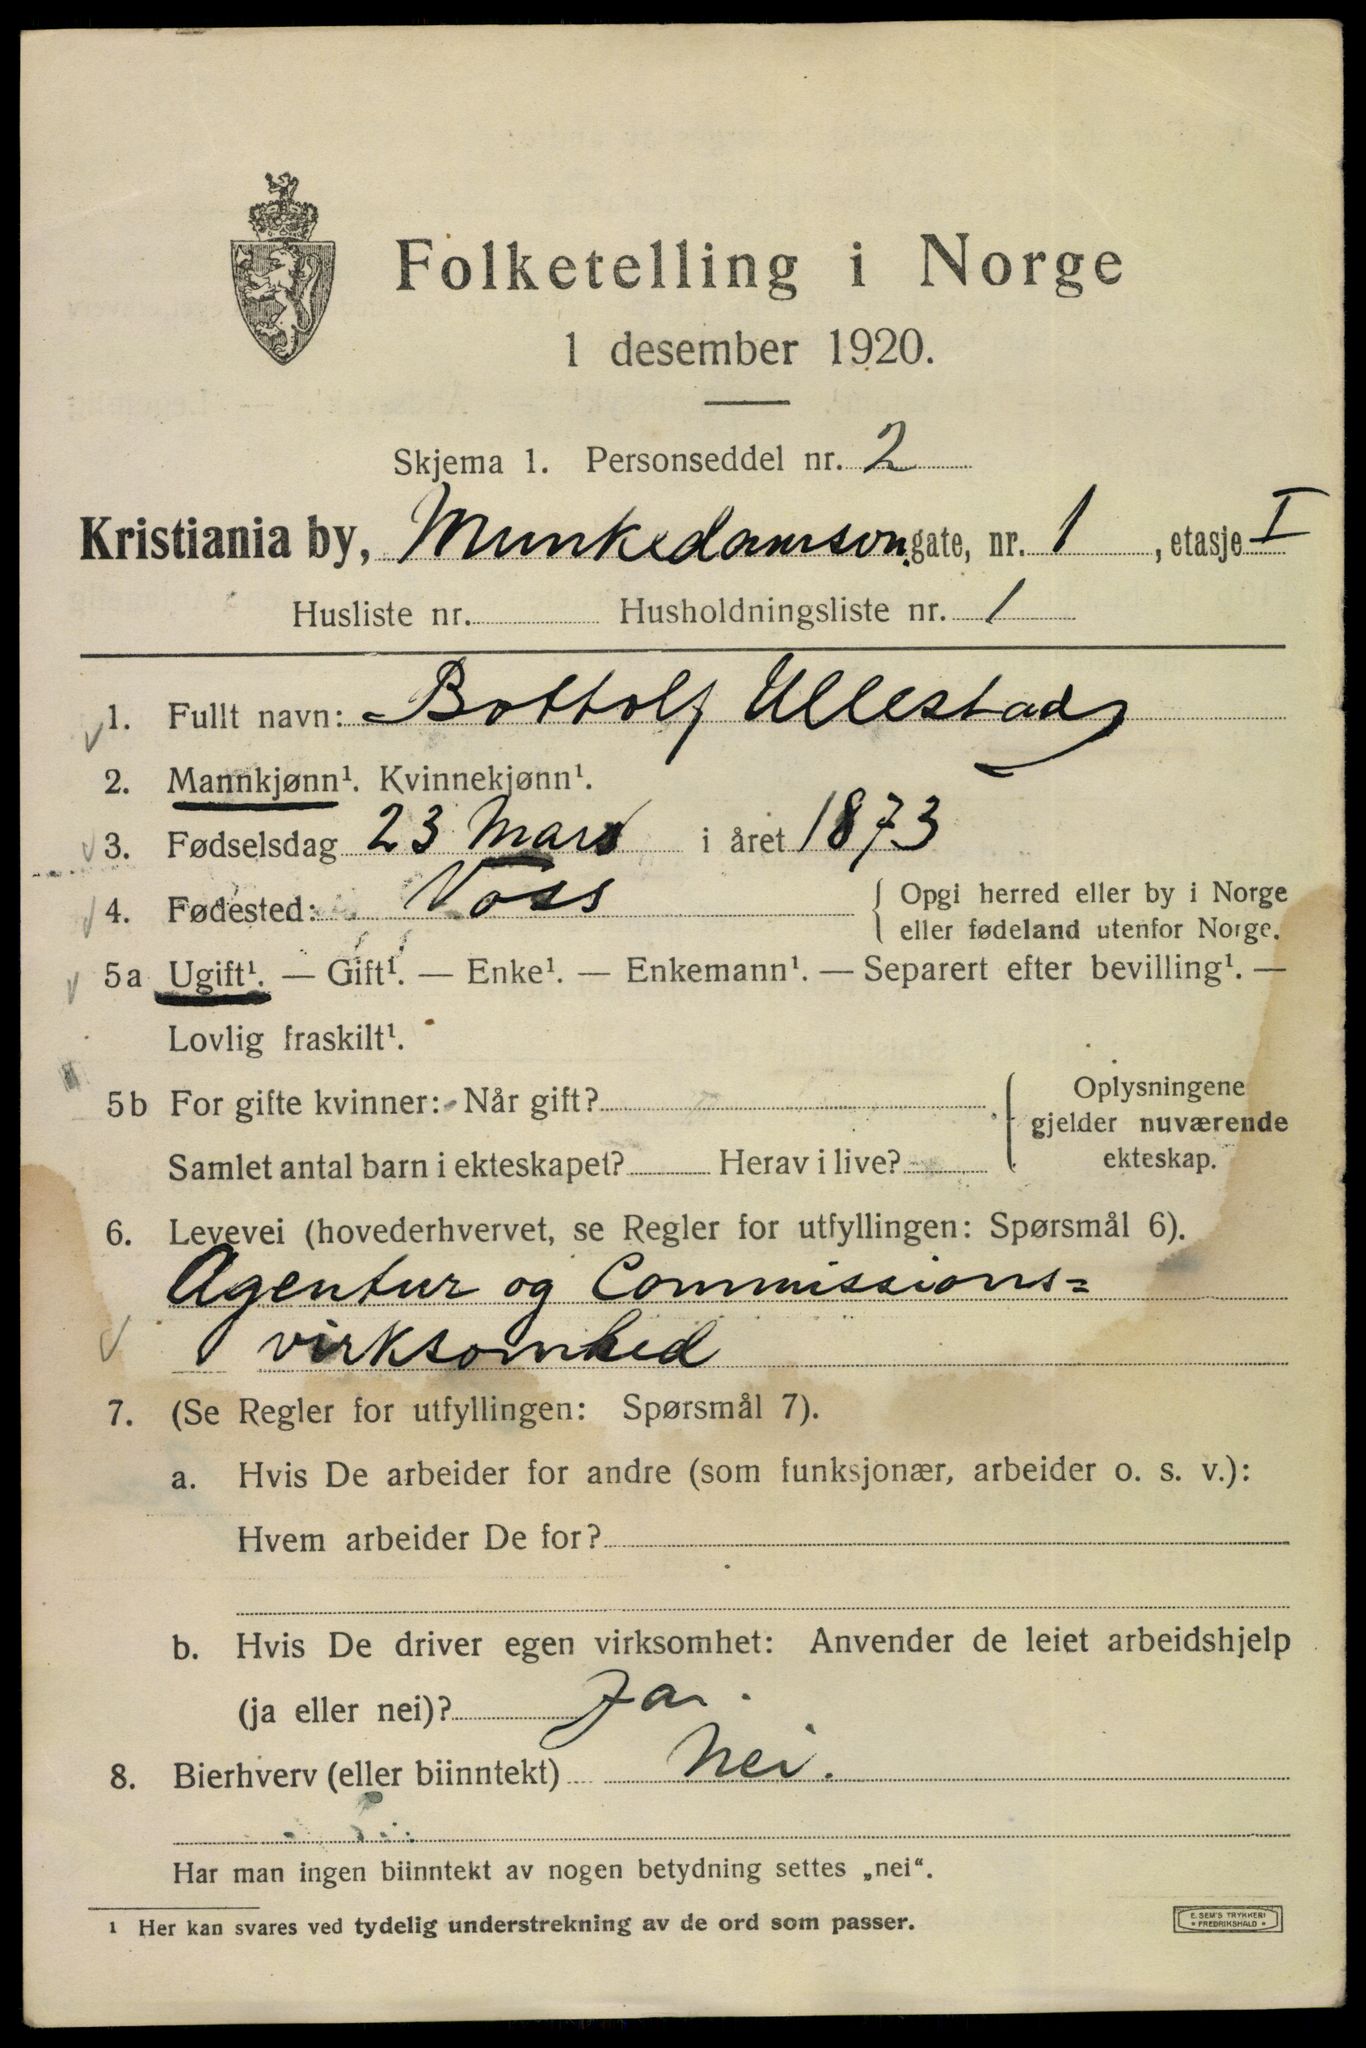 Folketelling i Norge
1 desember 1920.
Skjema 1. Personseddel nr. 2
Kristiania by, Munkedamsvn. gate, nr. 1, etasje I
Husliste nr. Husholdningsliste nr. 1
1. Fullt navn: Bottolf Ullestad
2. Mannkjønn¹. Kvinnekjønn¹.
3. Fødselsdag 23 Mars i året 1873
4. Fødested: Voss { Opgi herred eller by i Norge
eller fødeland utenfor Norge.
5a Ugift¹. — Gift¹. — Enke¹. — Enkemann¹. — Separert efter bevilling¹. —
Lovlig fraskilt¹.
5b For gifte kvinner: Når gift? Oplysningene
gjelder nuværende
Samlet antal barn i ekteskapet? Herav i live? ekteskap.
6. Levevei (hovederhvervet, se Regler for utfyllingen: Spørsmål 6).
Agentur og Commissions=
virksomhed
7. (Se Regler for utfyllingen: Spørsmål 7).
a. Hvis De arbeider for andre (som funksjonær, arbeider o. s. v.):
Hvem arbeider De for?
b. Hvis De driver egen virksomhet: Anvender de leiet arbeidshjelp
(ja eller nei)? Ja.
8. Bierhverv (eller biinntekt) Nei.
Har man ingen biinntekt av nogen betydning settes „nei“.
¹ Her kan svares ved tydelig understrekning av de ord som passer.
E. SEM'S TRYKKERI
* FREDRIKSHALD *